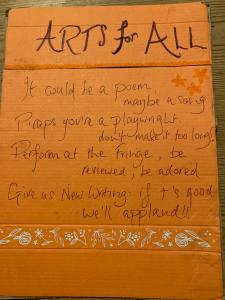 ARTS for ALL
It could be a poem,
maybe a song
Praps you're a playwright.
don't make it too long!
Perform at the fringe, be
reviewed, be adored
Give us New Writing: if t's good
we'll applaud!!